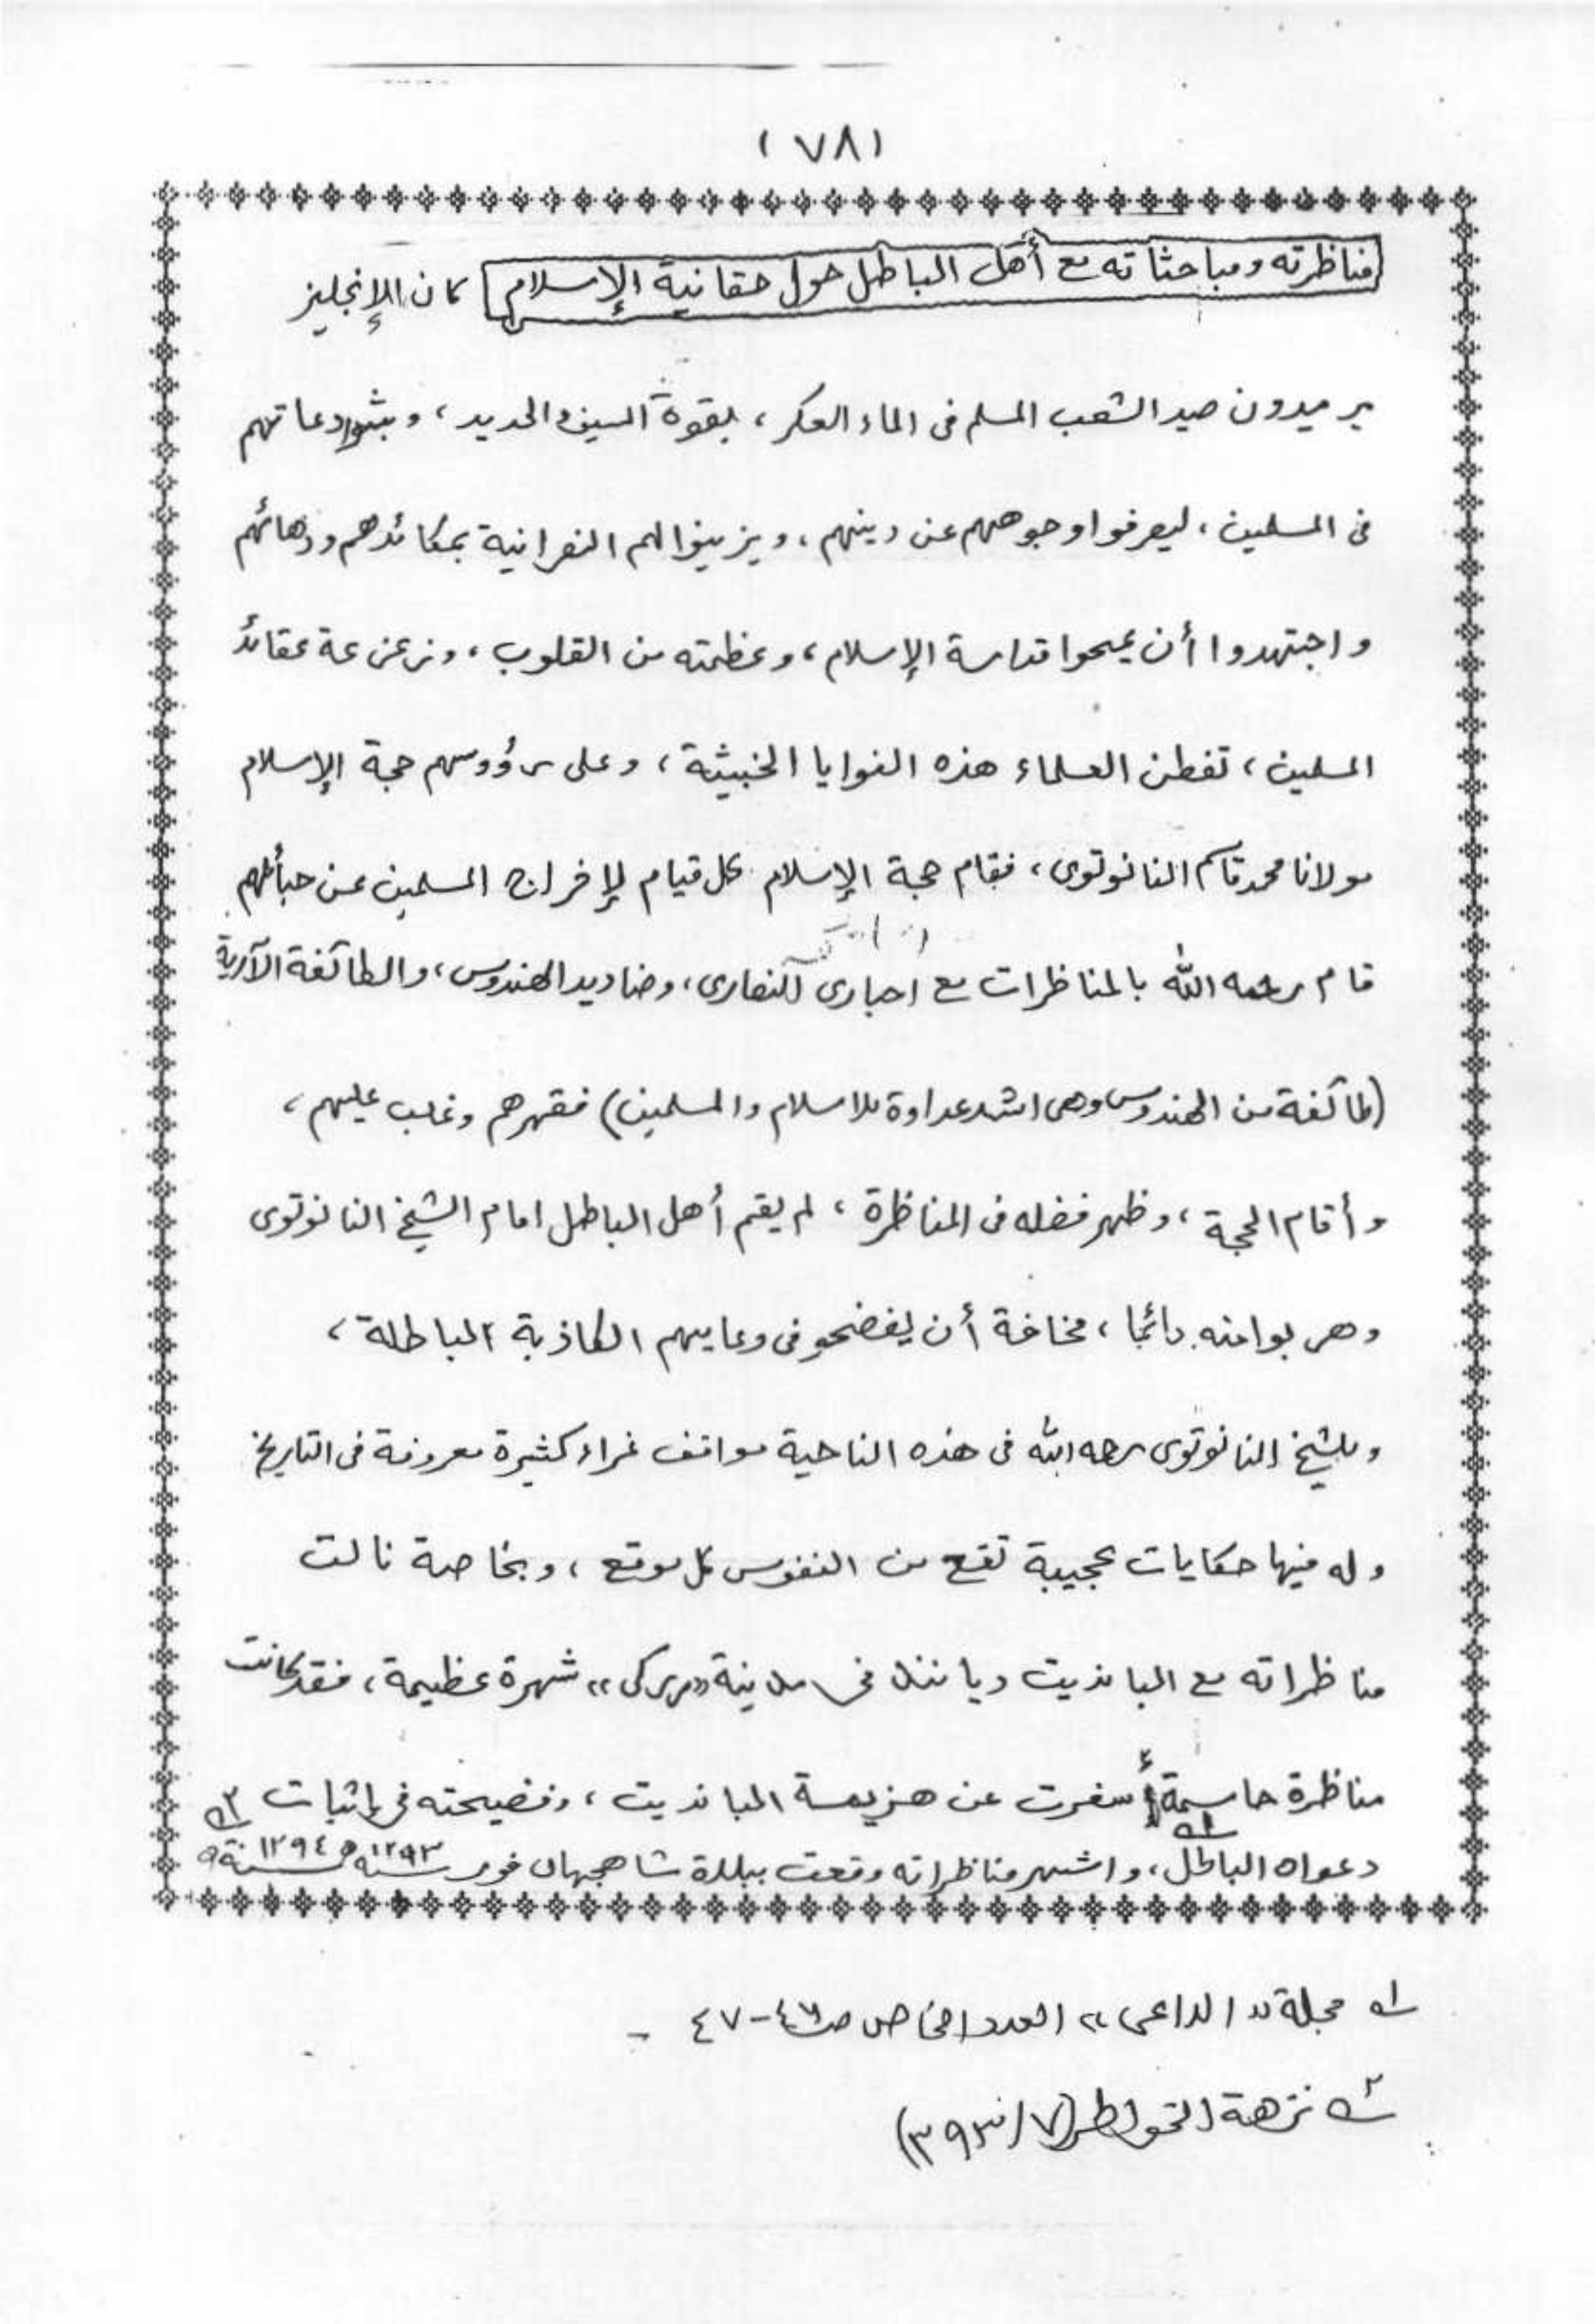 (٧٨)
مناظرته ومباحثاته مع أهل الباطل حول حقانية الإسلام كان الإنجليز
يريدون صيد الشعب المسلم فى الماء العكر، بقوة السيف والحديد، وبثوا دعاتهم
فى المسلمين، ليصرفوا وجوههم عن دينهم، ويزينوا لهم النصرانية بمكائدهم ودهائهم
واجتهدوا أن يمحوا قداسة الإسلام، وعظمته من القلوب، وزعزعة عقائد
المسلمين، تفطن العلماء هذه النوايا الخبيثة، وعلى رؤوسهم حجة الإسلام
مولانا محمد قاسم النانوتوى، فقام حجة الإسلام كل قيام لإفراج المسلمين عن حبائلهم
قام رحمه الله بالمناظرات مع احبارى النصارى، وصناديد الهندوس، والطائفة الآرية
(طائفة من الهندوس وهى اشد عداوة للاسلام والمسلمين) فقهرهم وغلب عليهم،
وأقام الحجة، وظهر فضله فى المناظرة، لم يقم أهل الباطل امام الشيخ النانوتوى
وهربوا منه دائما، مخافة أن يفضحو فى دعاييهم الكاذبة الباطلة،
وللشيخ النانوتوى رحمه الله فى هذه الناحية مواقف غراء كثيرة معروفة فى التاريخ
وله فيها حكايات عجيبة تقع من النفوس كل موقع، وبخاصة نالت
مناظراته مع الباندیت دیانند فى مدينة «رركى» شهرة عظيمة، فقد كانت
مناظرة حاسمة أسفرت عن هزيمة الباندیت، وفضيحته فى إثبات
دعواه الباطل،١ واشهر مناظراته وقعت ببلدة شاهجهان فور سنه ١٢٩٣ھ و سنة ١٢٩٤ھ ٢
١ مجلة «الداعى» العدد الخاص ص ٤٦-٤٧ -
٢ نزهة الخواطر (٧/٣٩٣)